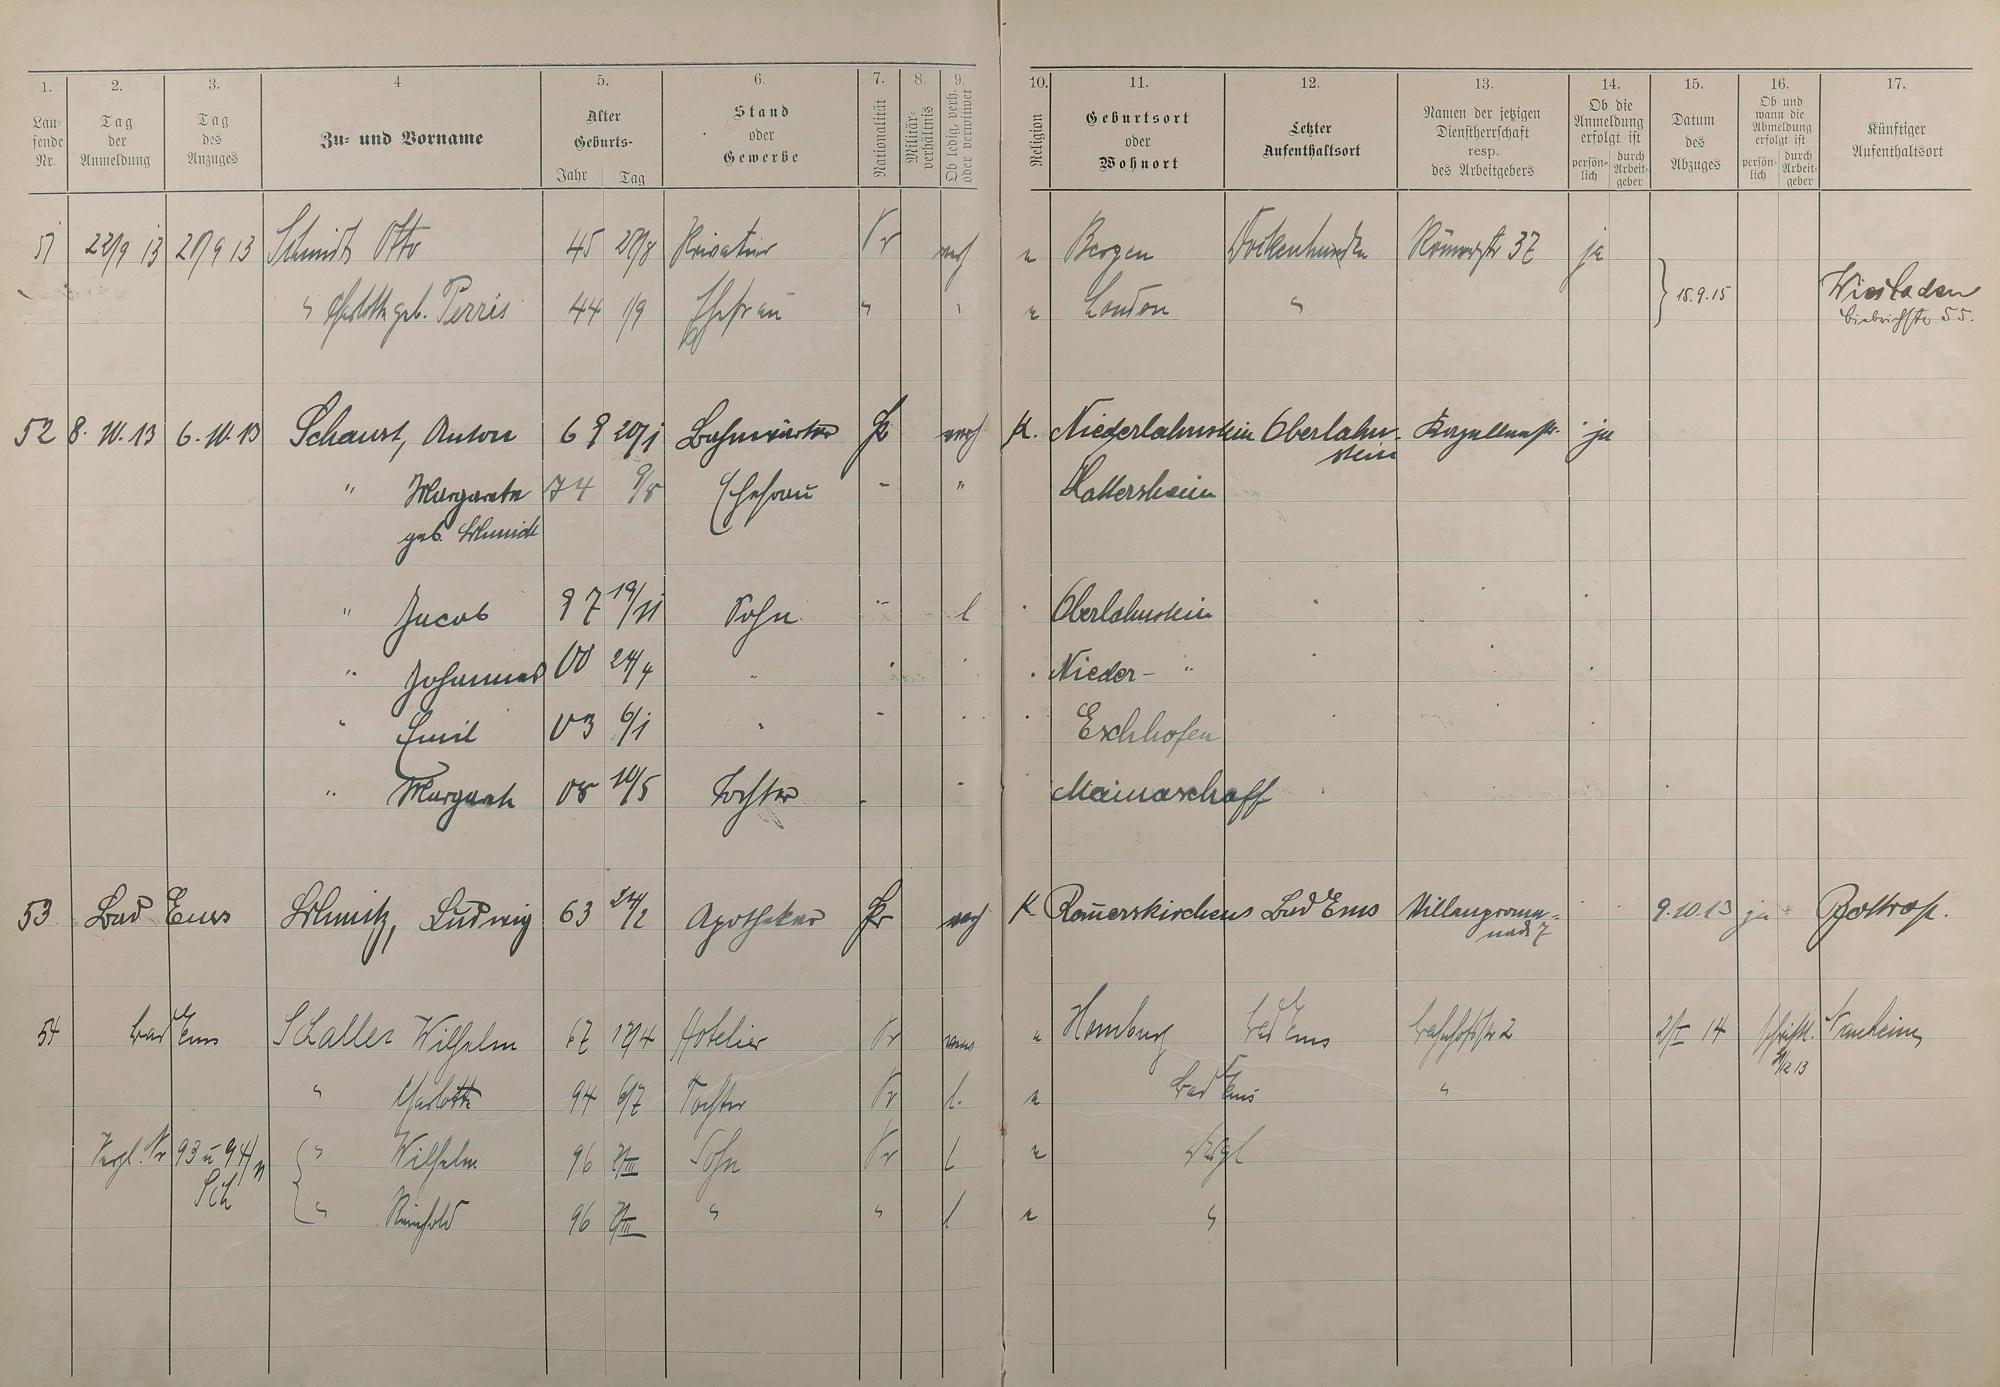 1. 2. 3. 4 5. 6. 7. 8. 9. 10. 11. 12. 13. 14. 15. 16. 17.
Lau-
fende
Nr.
Tag
der
Anmeldung
Tag
des
Anzuges
Zu- und Vorname
Alter
Geburts-
Jahr Tag
Stand
oder
Gewerbe
Nationalität
Militär-
verhältnis
Ob ledig, verh.
oder verwitwet
Religion
Geburtsort
oder
Wohnort
Letzter
Aufenthaltsort
Namen der jetzigen
Dienstherrschaft
resp.
des Arbeitgebers
Ob die
Anmeldung
erfolgt ist
persön-
lich
durch
Arbeit-
geber
Datum
des
Abzuges
Ob und
wann die
Abmeldung
erfolgt ist
persön-
lich
durch
Arbeit-
geber
Künftiger
Aufenthaltsort
51 22/9 13 Schmidt Otto 45 Privatier Pr verh Bergen Römerstr 37 ja
" geb. Perris 44 1/9 Ehefrau " London " 15.9.15 Wiesbaden
Biebricherstr 55.
52 8. 10. 13 6. 10. 13 Schaust, Anton 69 20/1 Bahnwärter Pr verh K. Niederlahnstein Oberlahn-
stein ja
" Margareta 74 9/8 Ehefrau - " Hattersheim
geb. Schmidt
" Jacob 97 19/11 Sohn l Oberlahnstein
" Johannes 00 24/4 " Nieder- "
" Emil 03 6/1 " Eschhofen
" Margareth 08 10/5 Tochter Mainaschaff
53 Bad Ems Schmitz, Ludwig 63 24/2 Apotheker Pr verh K Rommerskirchens Bad Ems Villenprome-
nade 7 9.10.13 ja Bottrop.
54 Bad Ems Schaller Wilhelm 67 12/4 Hotelier Pr Homburg Bad Ems Bahnhofstr 2 14 schriftl. Nauheim
12 13
" Charlotte 94 6/7 Tochter Pr l. Bad Ems "
Vergl. Nr 93 u 94/11 " Wilhelm 96 Sohn Pr l
Sch
" Reinhold 96 " " l "